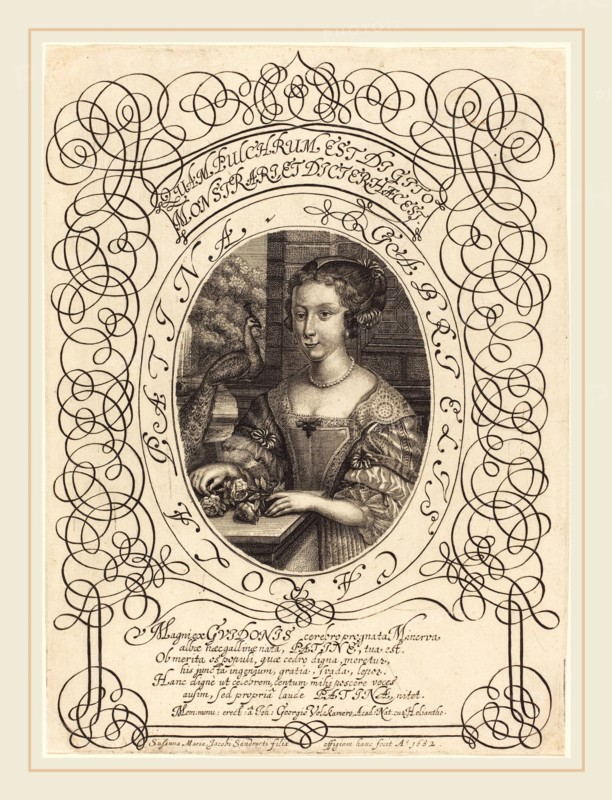 QUAM PULCHRUM EST DIGITO
MONSTRARI ET DICIER HÆC EST.
GABRIELIS CAROLA PATINA.
Magni ex GVIDONIS cerebro prognata Minerva
albæ hæc gallinæ nata, PATINE, tua est.
Ob merita os populi, quæ cedro digna, meretur,
his juncta ingenium, gratia, svada, lepos.
Hanc digne ut celebrem, centum mihi poscere voces
ausim, sed propriâ laude PATINA, nitet.
Mon: munu: erect: â Joh: Georgio Volckamero, Acad: Nat: cur: Helianthe.
Susanna Maria Jacobi Sandrarti filia effigiem hanc fecit Aº 1682.